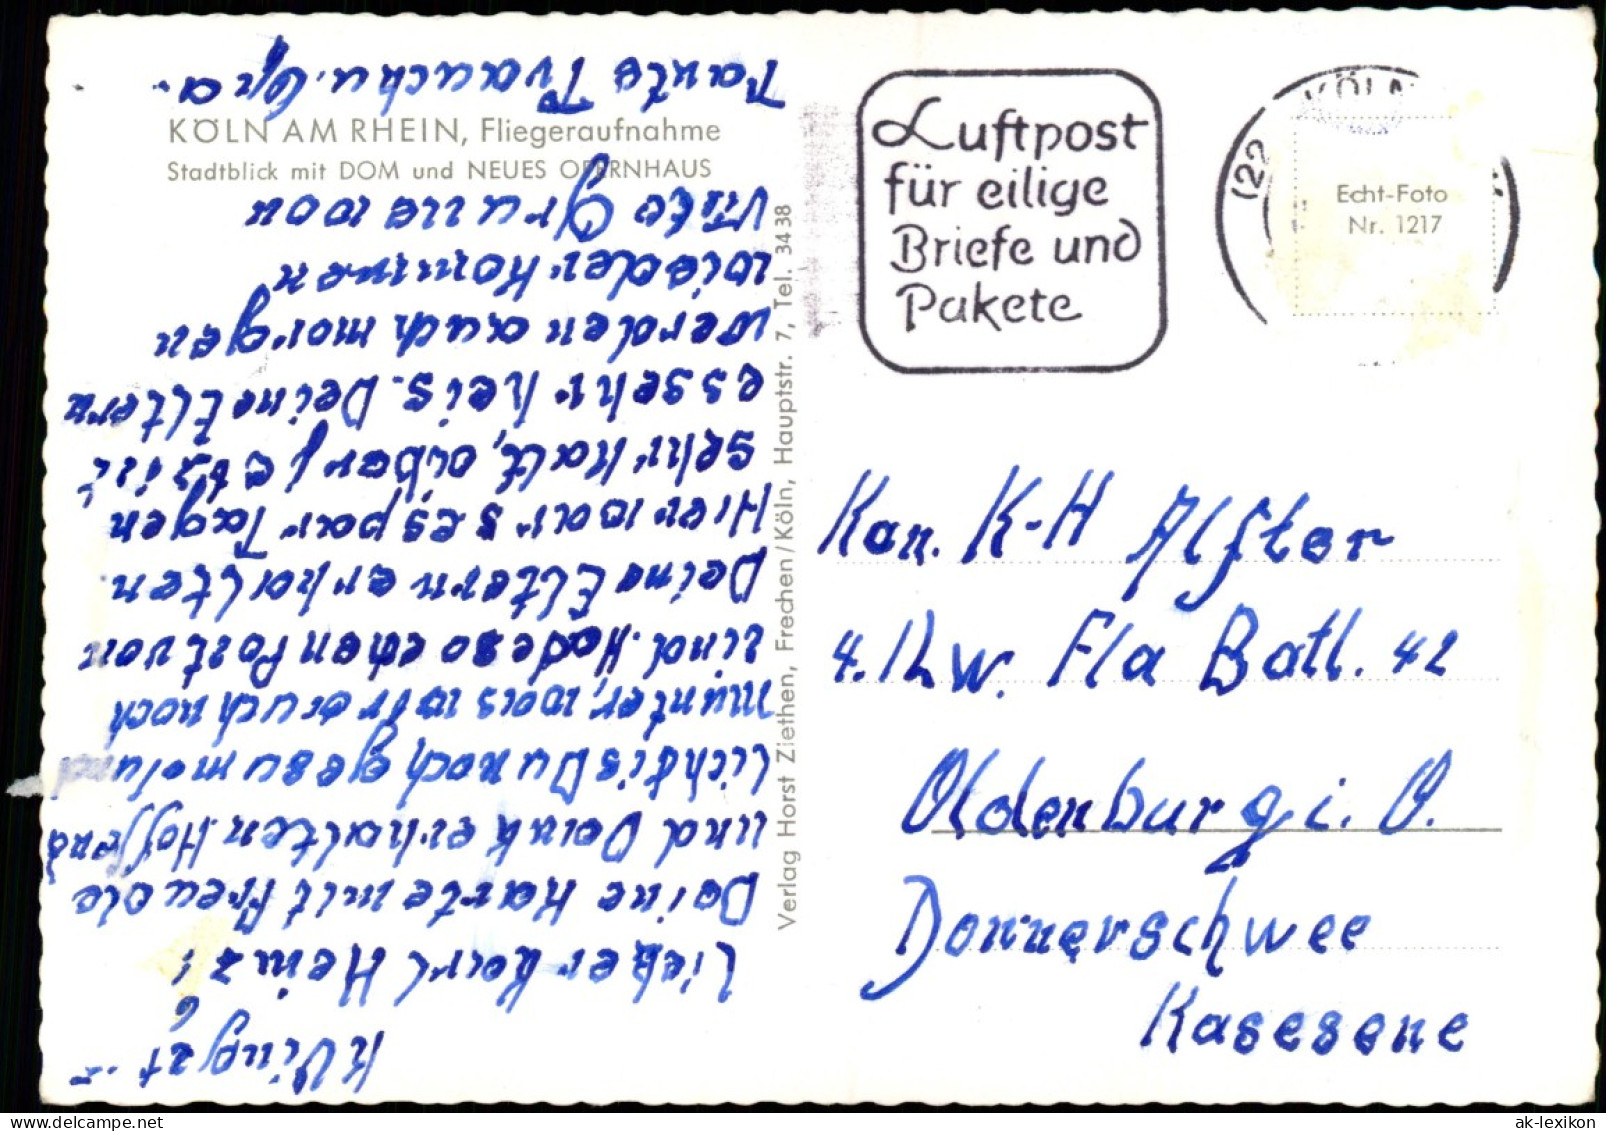 KÖLN AM RHEIN, Fliegeraufnahme
Stadtblick mit DOM und NEUES OPERNHAUS
Lieber Karl Heinz!
Deine Karte mit Freude
und Dank erhalten. Hoffend
lich bis Du noch gesu molund
munter, was wir auch noch
sind. Hade so ehen Post von
Deine Eltern erhalten.
Hier war s es par Tagen
sehr kalt, aber jetzt ist
es sehr heis. Deine Eltern
werden auch morgen
wieder kommen
Viele Grüße von
Tante Trauchu.
Verlag Horst Ziethen, Frechen/Köln, Hauptstr. 7, Tel. 34 38
Luftpost
für eilige
Briefe und
Pakete
(22
KÖLN
Echt-Foto
Nr. 1217
Kan. K-H Alfter
4. Lw. Fla Batl. 42
Oldenburg i. O.
Donnerschwee
Kasesene
ak-lexikon